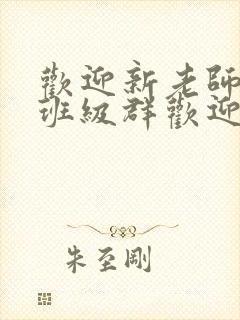 歡迎新老師
班級群歡迎
朱至剛